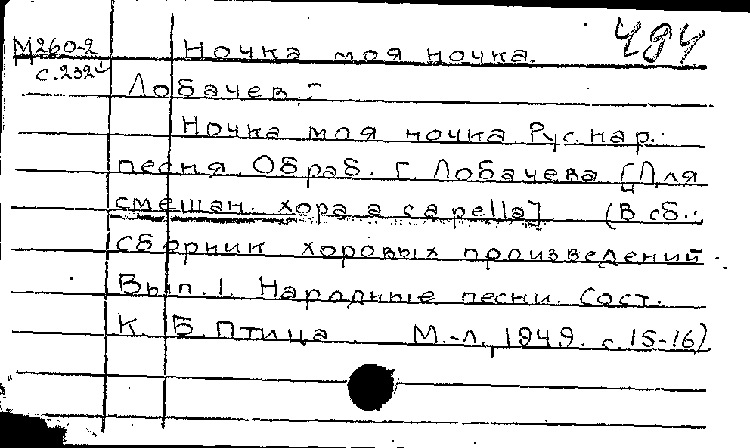 М260-2 Ночка моя ночка. 494
с.232
Лобачев,-
Ночка моя ночка Рус. нар.
песня. Обраб. Г. Лобачева [Для
смешан. хора a capella] (В сб.:
Сборник хоровых произведений.
Вып. 1. Народные песни. Сост.
К. Б. Птица М.-Л., 1949. с. 15-16)